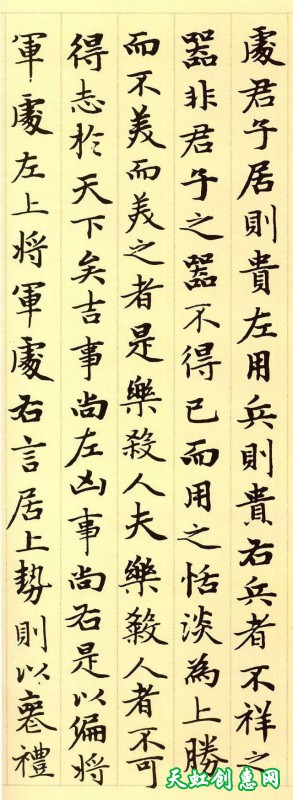 處君子居則貴左用兵則貴右兵者不祥之
器非君子之器不得已而用之恬淡為上勝
而不美而美之者是樂殺人夫樂殺人者不可
得志於天下矣吉事尚左凶事尚右是以偏將
軍處左上將軍處右言居上勢則以喪禮
天虹创意网